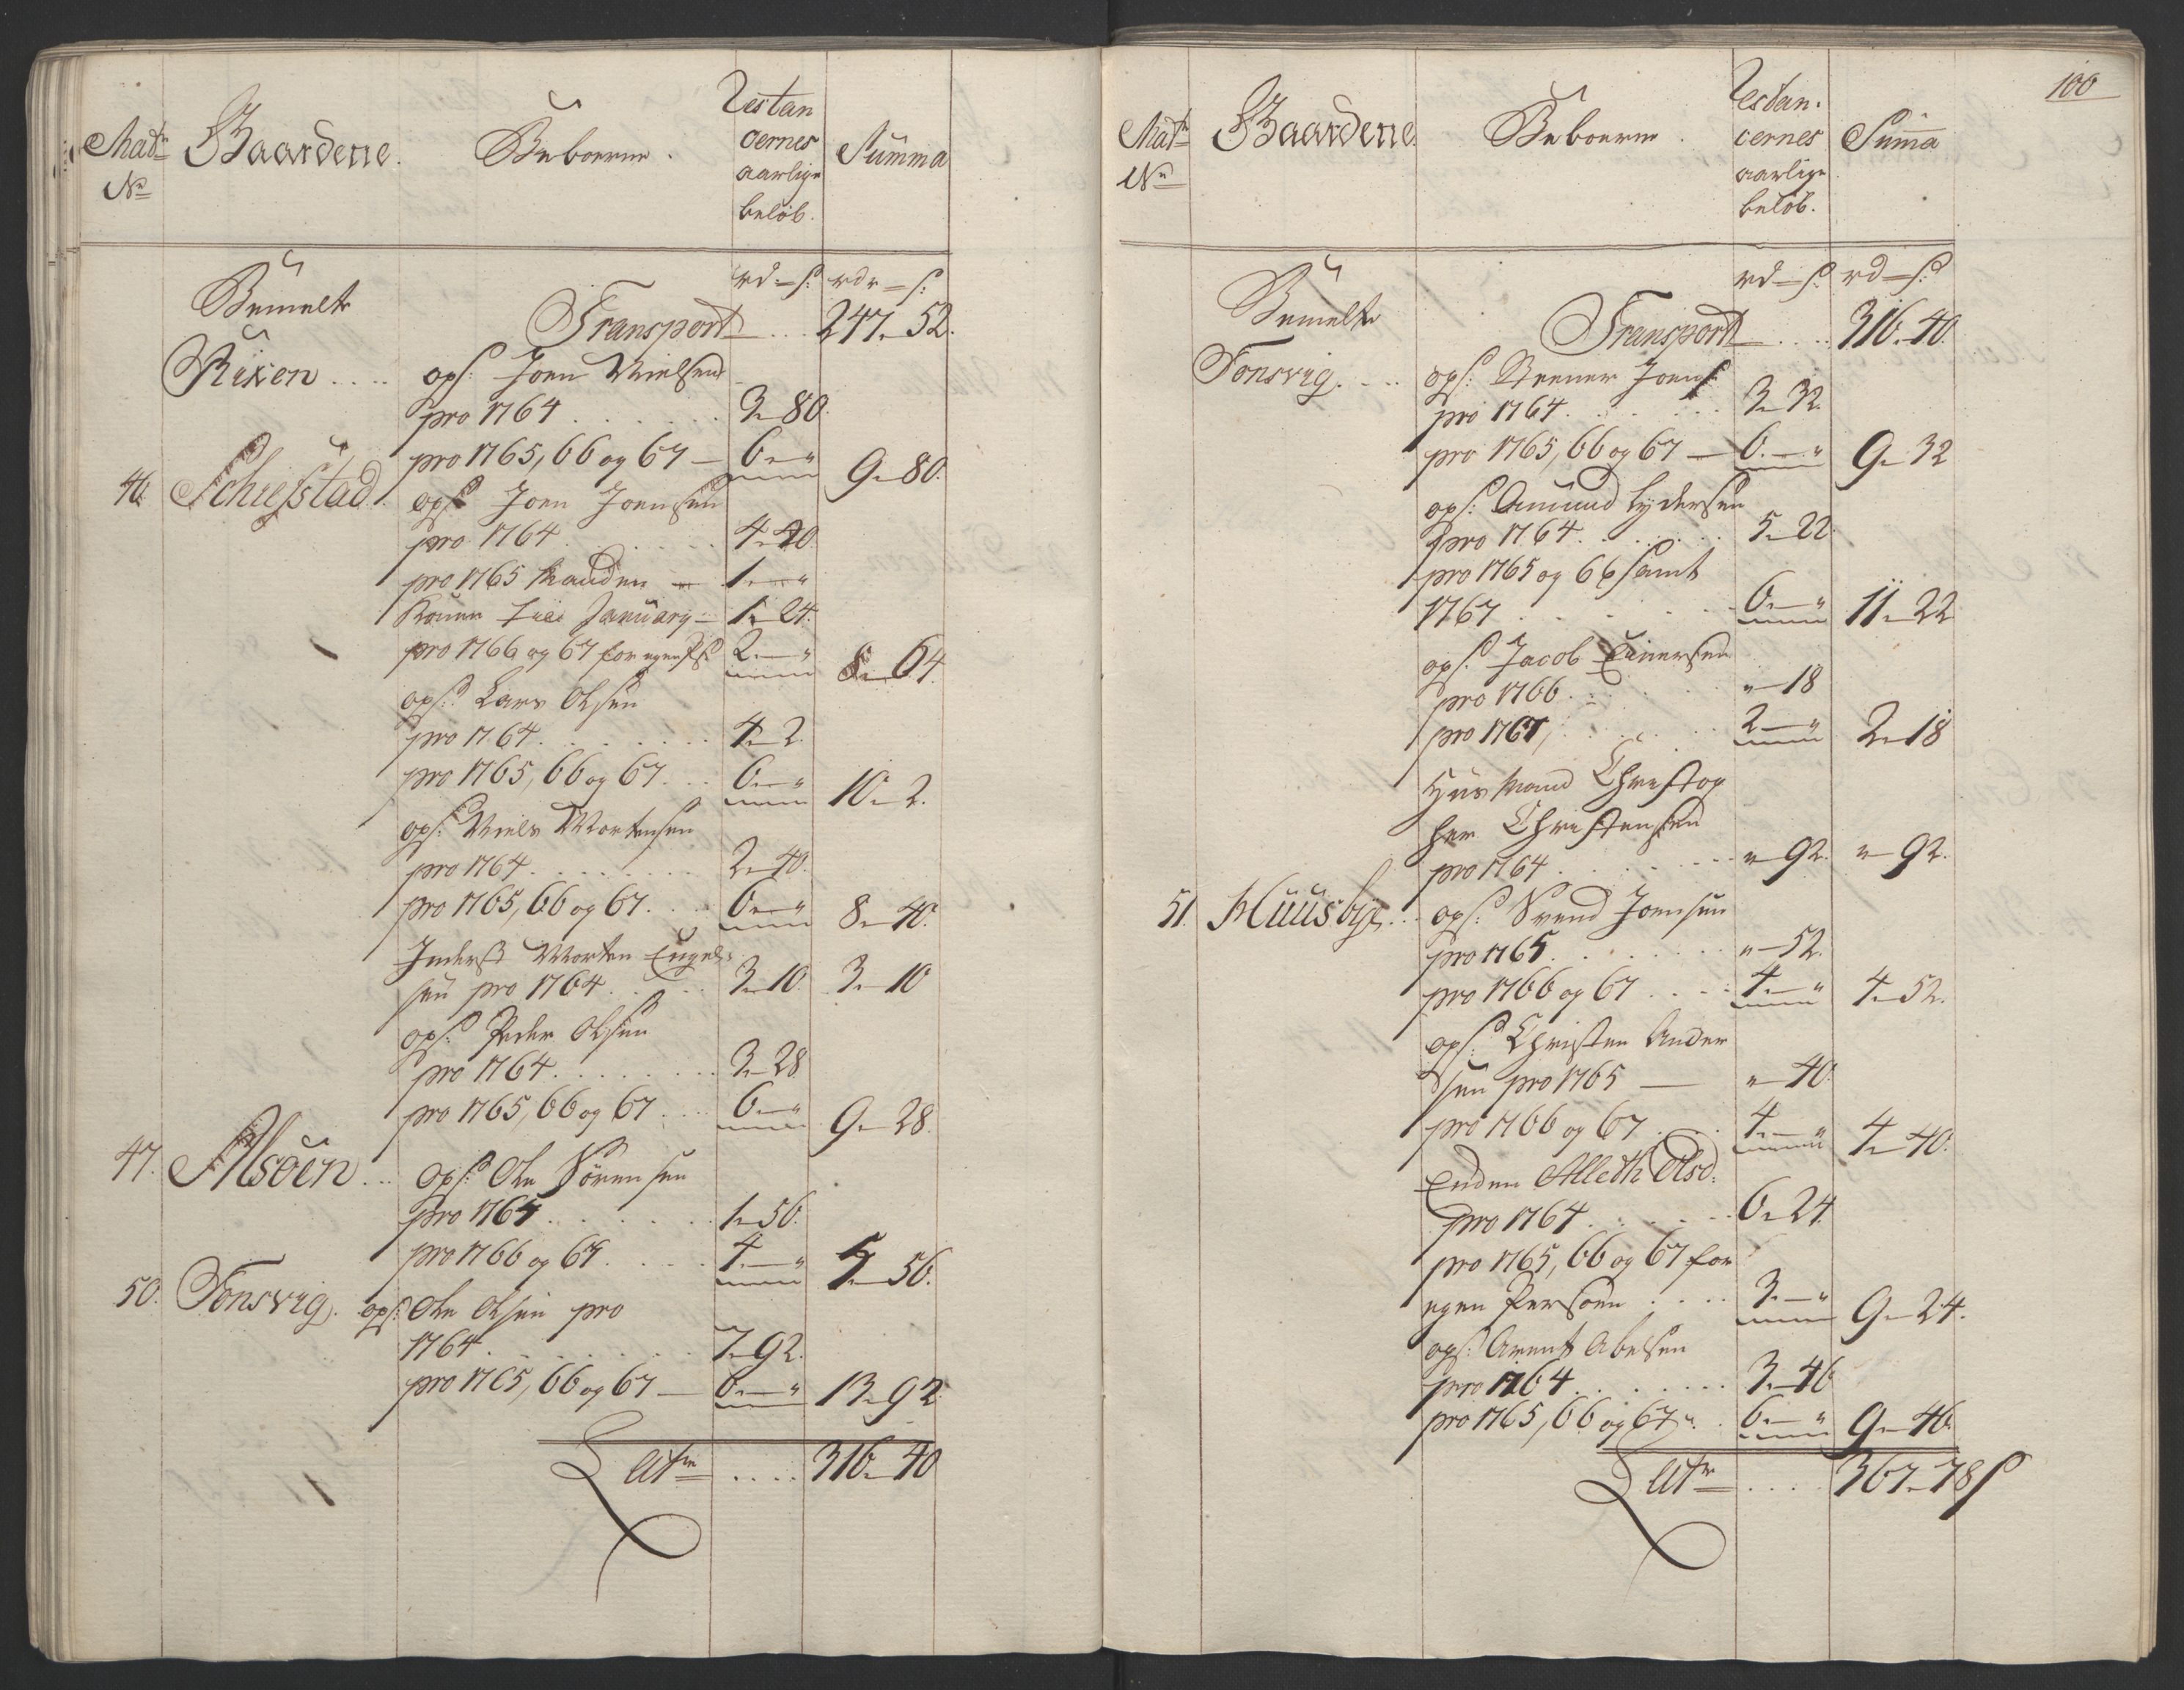 Matr
No
Gaardene.
Beboerne.
Restan
cernes
aarlige
beløb.
Summa
rd - s: rdr - s:
Bemelte
Transport .... 247 - 52.
Rixen .... ops: Joen Nielsen
pro 1764 ....... 3 - 80.
pro 1765, 66 og 67 — 6 - " 9 - 80.
46. Schiefstad. ops: Joen Joensen
pro 1764 ....... 4 - 40.
pro 1765 Manden — 1 - "
Konen Januarij — 1 - 24.
pro 1766 og 67 for egen Ps: 2 - " 8 - 64.
ops: Lars Olsen
pro 1764 ....... 4 - 2.
pro 1765, 66 og 67 ... 6 - " 10 - 2.
ops: Niels Mortensen
pro 1764 ....... 2 - 40.
pro 1765, 66 og 67 ... 6 - " 8 - 40.
Inderst Morten Engel-
sen pro 1764 .... 3 - 10. 3 - 10
ops: Peder Olsen
pro 1764 ....... 3 - 28
pro 1765, 66 og 67 ... 6 - " 9 - 28.
47. Alsöen ... ops: Ole Sörensen
pro 1765 ...... 1 - 56.
pro 1766 og 67 .... 4 - " 5 - 56.
50. Tonsvig. ops: Ole Olsen pro
1764 ....... 7 - 92.
pro 1765, 66 og 67 — 6 - " 13 - 92.
Latr .... 316 - 40
100
Matr
No
Gaardene.
Beboerne.
Restan-
cernes
aarlige
beløb.
Summa
rd - s: rd - s:
Bemelte
Transport .... 316 - 40.
Tonsvig .... ops: Steener Joens:
pro 1764 ...... 3 - 32.
pro 1765, 66 og 67 — 6 - " 9 - 32
ops: Amund Lydersen
pro 1764 ....... 5 - 22.
pro 1765 og 66 samt
1767 ..... 6 - " 11 - 22
ops: Jacob Einersen
pro 1766 ..... " - 18
pro 1767, ...... 2 - " 2 - 18
Huusmand Christop
her Christensen
pro 1764 ...... " - 92. " - 92.
51. Muusbye ... ops: Svend Joensen
pro 1765 ...... " - 52.
pro 1766 og 67 .... 4 - " 4 - 52.
ops: Christen Ander
sen pro 1765 — " - 40.
pro 1766 og 67 .... 4 - " 4 - 40.
Enken Alleth Olsd:
pro 1764 ...... 6 - 24.
pro 1765, 66 og 67 for
egen Persoen .... 3 - " 9 - 24.
ops: Arent Abelsen
pro 1764 ....... 3 - 46
pro 1765, 66 og 67 .. 6 - " 9 - 46.
Latr .... 367 - 78 s